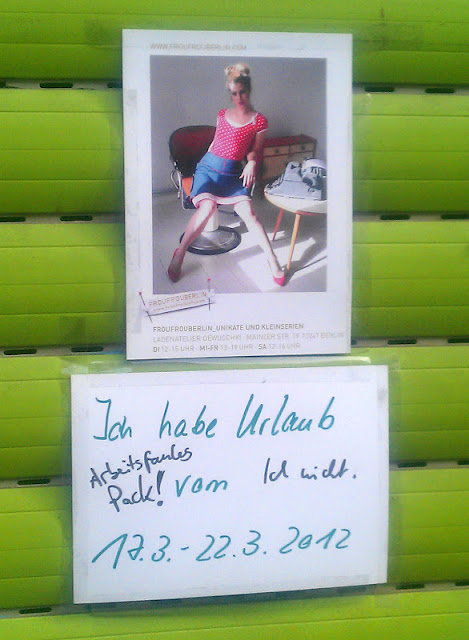 WWW.FROUFROUBERLIN.COM
FROUFROUBERLIN
FROUFROUBERLIN_UNIKATE UND KLEINSERIEN
LADENATELIER DEWUSCHKI · MAINZER STR. 19 10247 BERLIN
DI 12-15 UHR · MI-FR 13-19 UHR · SA 12-16 UHR
Ich habe Urlaub
Arbeitsfaules
Pack! vom Ich nicht.
17.3.-22.3.2012